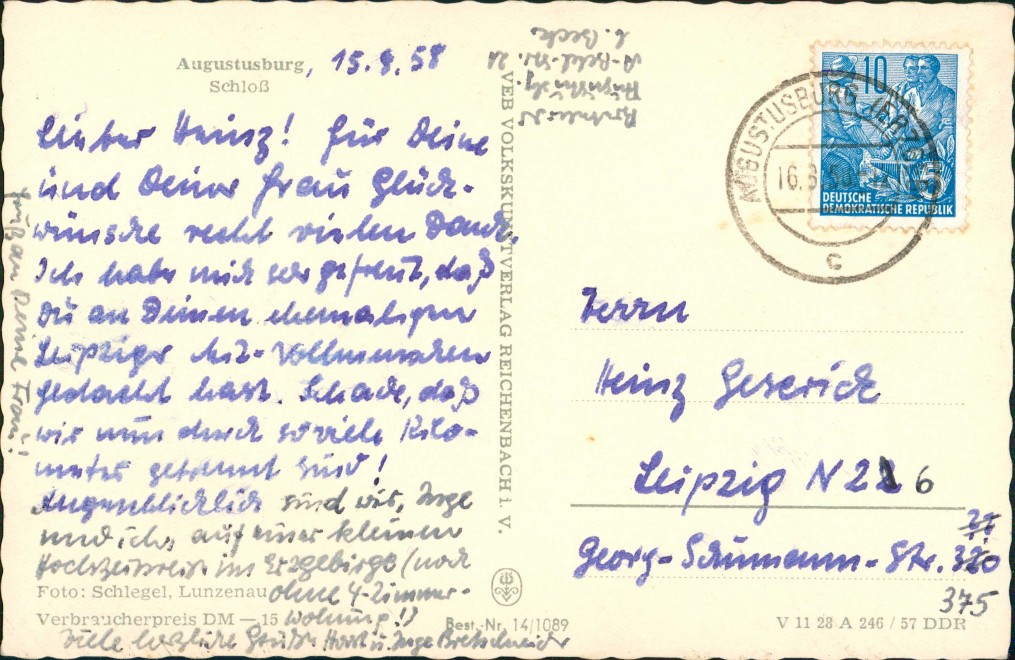 Augustusburg, 15.8.58
Schloß
Lieber Heinz! Für Deine
und Deiner Frau Glück-
wünsche recht vielen Dank.
Ich habe mich sehr gefreut, daß
Du an Deinen ehemaligen
Leipziger
gedacht hast. Schade, daß
wir nun durch so viele Kilo-
meter getrennt sind!
Augenblicklich sind wir, Inge
und ich, auf einer kleinen
Hochzeitsreise im Erzgebirge (noch
ohne 4-Zimmer-
Wohnung!)
Viele herzliche Grüße Horst u. Inge Bretschneider
Gruß an Deine Frau!
Foto: Schlegel, Lunzenau
Verbraucherpreis DM —15
Best.-Nr. 14/1089
VEB VOLKSKUNSTVERLAG REICHENBACH I. V.
AUGUSTUSBURG (ERZGEB)
16.8.58
c
10
DEUTSCHE
DEMOKRATISCHE REPUBLIK
Herrn
Heinz Geserick
Leipzig N 22 6
Georg-Schumann-Str.
375
V 11 28 A 246 / 57 DDR